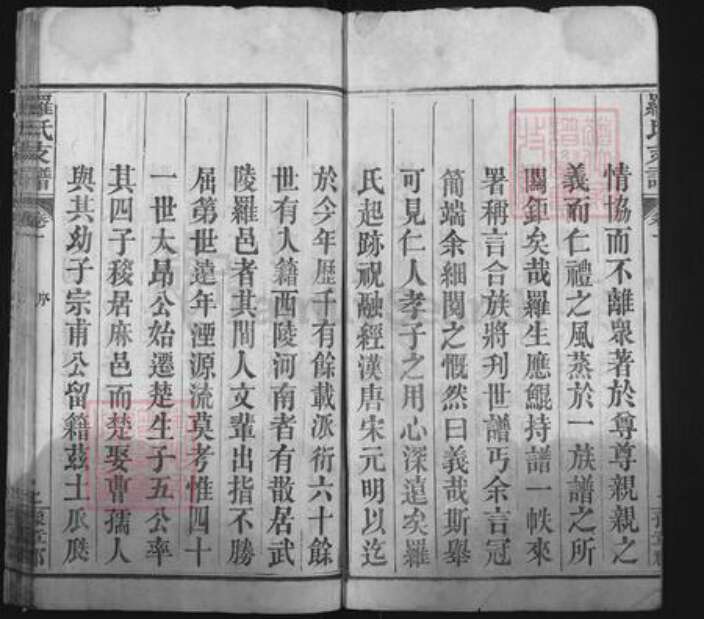 羅氏支譜
情協而不離眾著於尊尊親親之
義而仁禮之風蒸於一族譜之所
關鉅矣哉羅生應鯤持譜一帙來
署稱言合族將刋世譜丐余言冠
簡端余細閱之慨然曰義哉斯舉
可見仁人孝子之用心深遠矣羅
氏起跡祝融經漢唐宋元明以迄
於今年歷千有餘載派衍六十餘
世有入籍西陵河南者有散居武
陵羅邑者其間人文輩出指不勝
屈第世遠年湮源流莫考惟四十
一世太昴公始遷楚生子五公率
其四子移居麻邑而楚娶曹孺人
與其幼子宗甫公留籍茲土瓜瓞
羅氏支譜
卷一
序